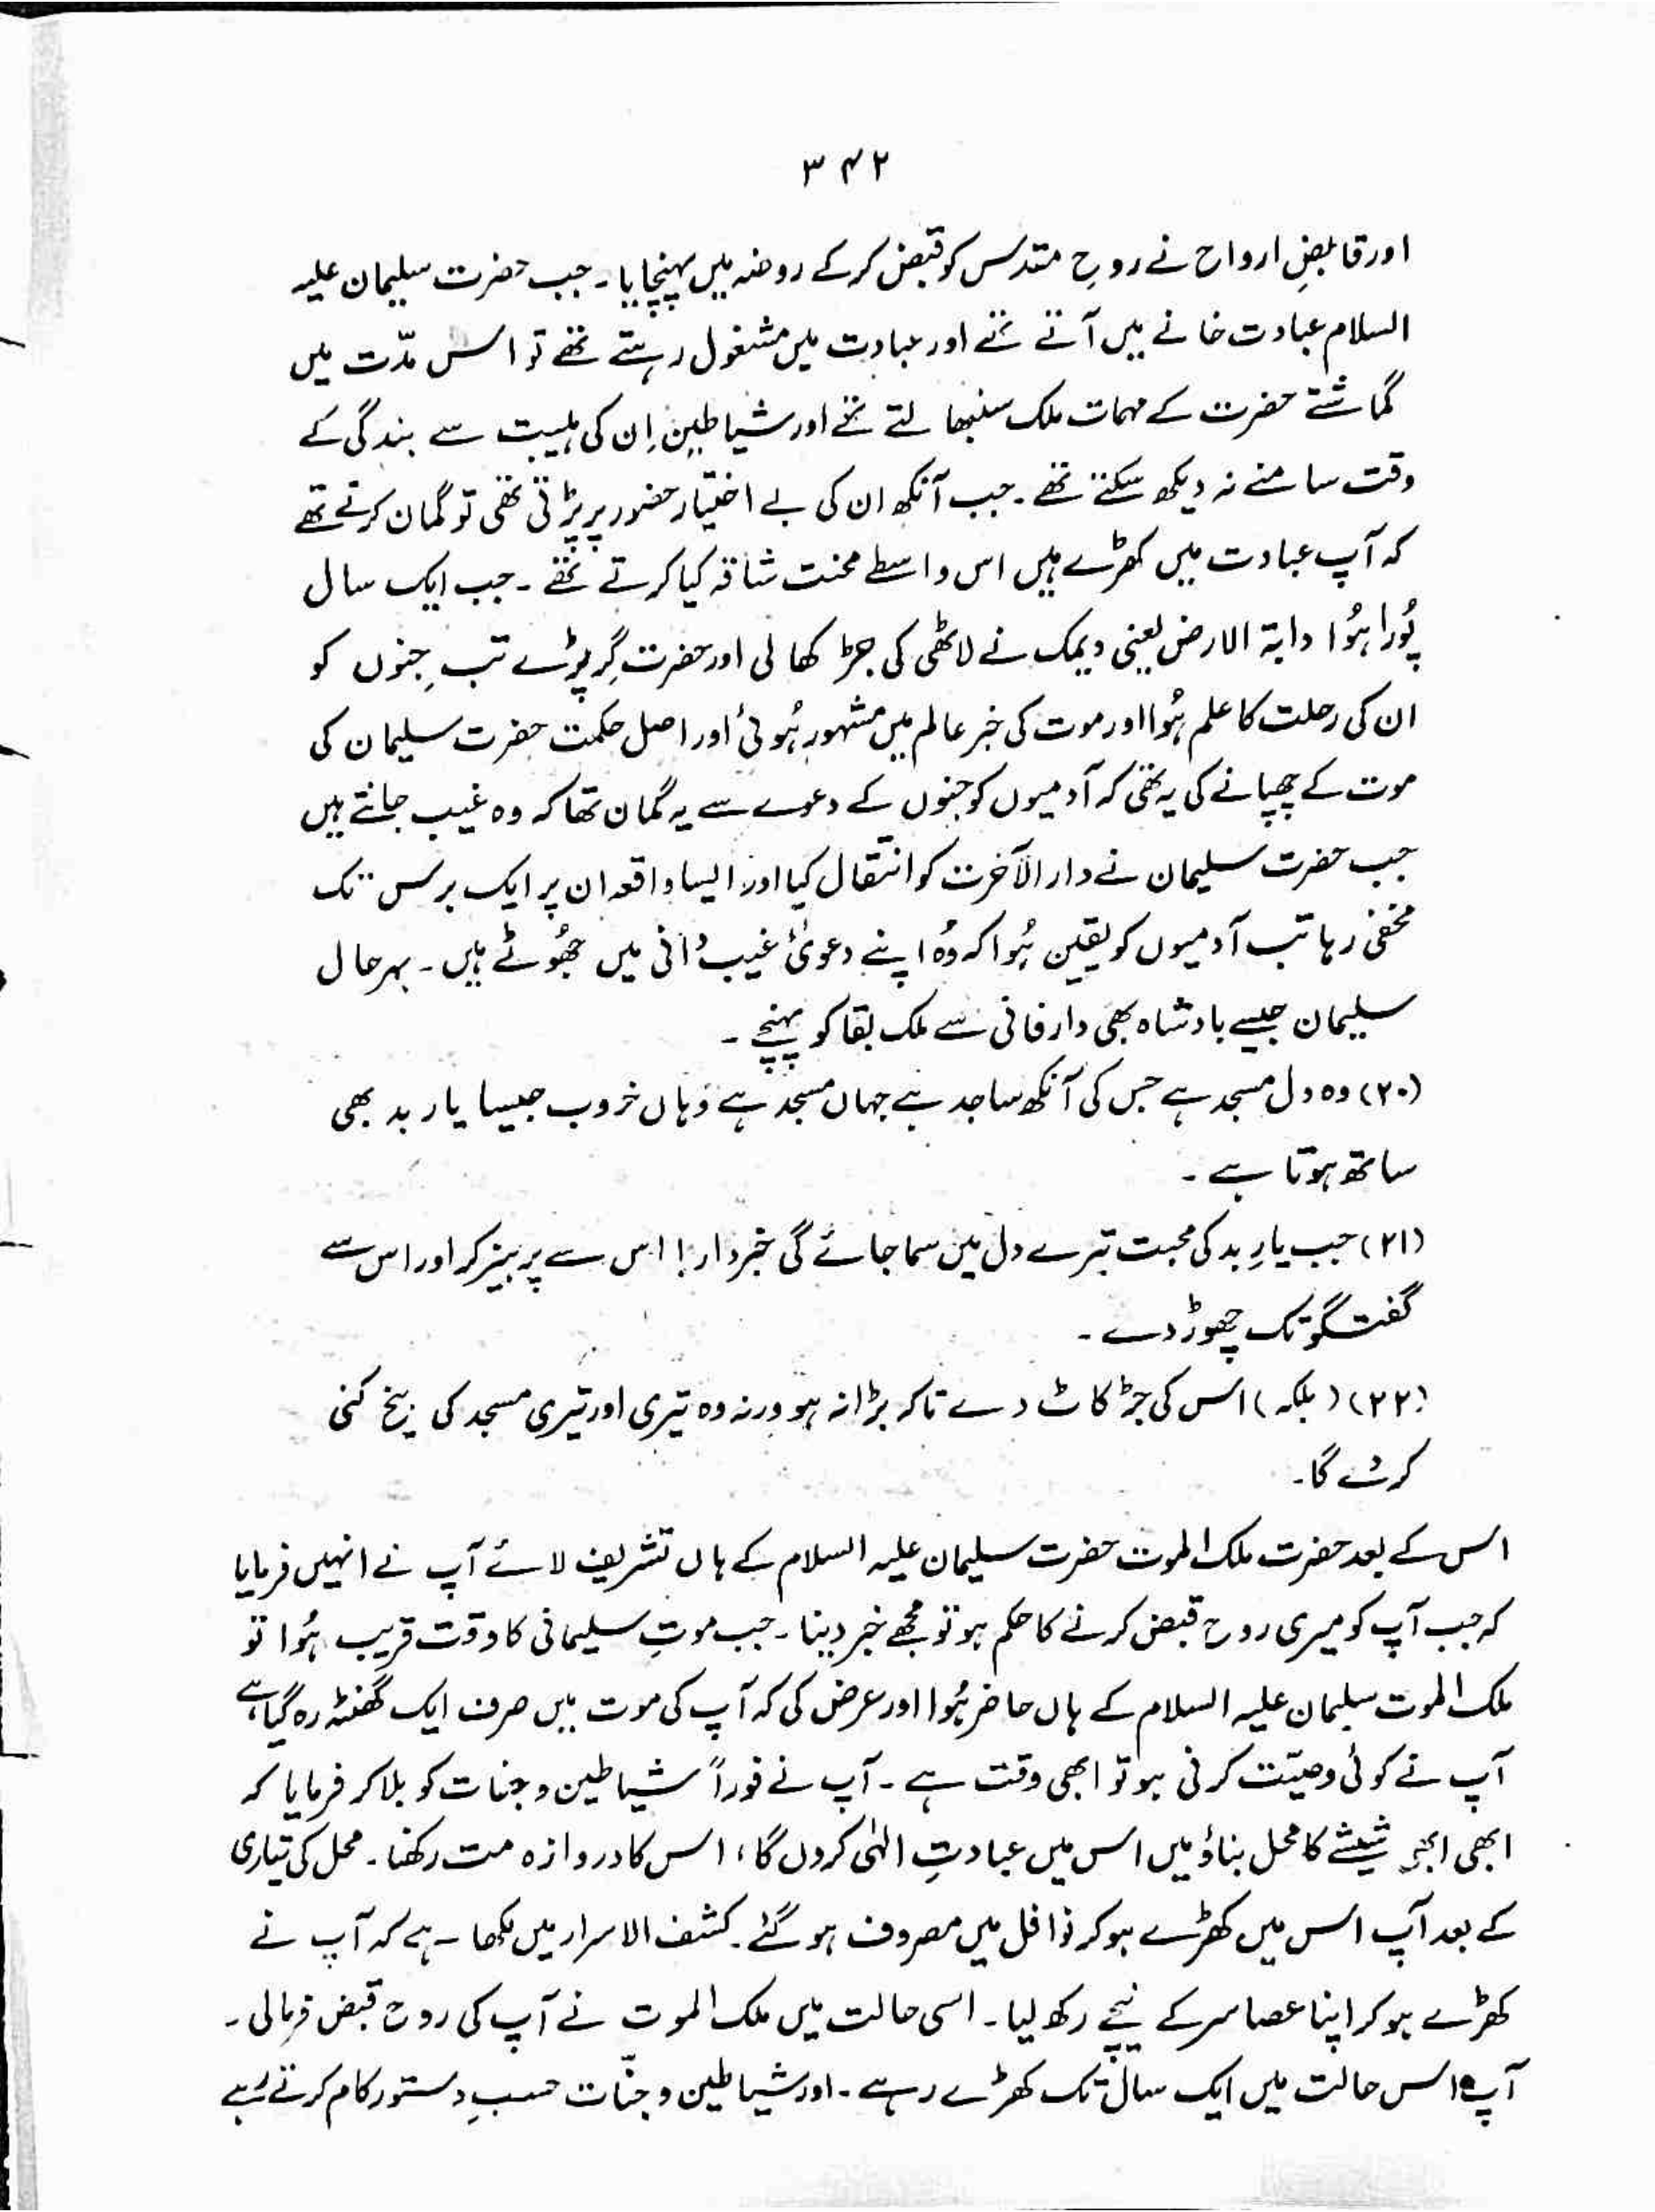 ۳۴۲
اور قابضِ ارواح نے روحِ مقدس کو قبض کر کے روضہ میں پہنچایا۔ جب حضرت سلیمان علیہ
السلام عبادت خانے میں آتے تھے اور عبادت میں مشغول رہتے تھے تو اس مدّت میں
گماشتے حضرت کے مہمات ملک سنبھالتے تھے اور شیاطین اِن کی ہیبت سے بندگی کے
وقت سامنے نہ دیکھ سکتے تھے۔ جب آنکھ ان کی بے اختیار حضور پر پڑتی تھی تو گمان کرتے تھے
کہ آپ عبادت میں کھڑے ہیں اس واسطے محنت شاقہ کیا کرتے تھے۔ جب ایک سال
پُورا ہُوا دابۃ الارض یعنی دیمک نے لاٹھی کی جڑ کھا لی اور حضرت گِر پڑے تب جِنوں کو
ان کی رحلت کا علم ہُوا اور موت کی خبر عالم میں مشہور ہُوئی اور اصل حکمت حضرت سلیمان کی
موت کے چھپانے کی یہ تھی کہ آدمیوں کو جنوں کے دعوے سے یہ گمان تھا کہ وہ غیب جانتے ہیں
جب حضرت سلیمان نے دار الآخرت کو انتقال کیا اور ایسا واقعہ ان پر ایک برس تک
مخفی رہا تب آدمیوں کو یقین ہُوا کہ وُہ اپنے دعویٰ غیب دانی میں جھُوٹے ہیں۔ بہرحال
سلیمان جیسے بادشاہ بھی دار فانی سے ملک بقا کو پہنچے۔
(۲۰) وہ دل مسجد ہے جس کی آنکھ ساجد ہے جہاں مسجد ہے وہاں خروب جیسا یار بد بھی
ساتھ ہوتا ہے۔
(۲۱) جب یارِ بد کی محبت تیرے دل میں سما جائے گی خبردار! اس سے پرہیز کر اور اس سے
گفتگو تک چھوڑ دے۔
(۲۲) (بلکہ) اس کی جڑ کاٹ دے تاکہ بڑا نہ ہو ورنہ وہ تیری اور تیری مسجد کی بیخ کنی
کرے گا۔
اس کے بعد حضرت ملک الموت حضرت سلیمان علیہ السلام کے ہاں تشریف لائے آپ نے انہیں فرمایا
کہ جب آپ کو میری روح قبض کرنے کا حکم ہو تو مجھے خبر دینا۔ جب موتِ سلیمانی کا وقت قریب ہُوا تو
ملک الموت سلیمان علیہ السلام کے ہاں حاضر ہُوا اور عرض کی کہ آپ کی موت میں صرف ایک گھنٹہ رہ گیا ہے
آپ نے کوئی وصیّت کرنی ہو تو ابھی وقت ہے۔ آپ نے فوراً شیاطین و جنات کو بلا کر فرمایا کہ
ابھی ابھی شیشے کا محل بناؤ میں اس میں عبادتِ الٰہی کروں گا، اس کا دروازہ مت رکھنا۔ محل کی تیاری
کے بعد آپ اس میں کھڑے ہو کر نوافل میں مصروف ہو گئے۔ کشف الاسرار میں لکھا ہے کہ آپ نے
کھڑے ہو کر اپنا عصا سر کے نیچے رکھ لیا۔ اسی حالت میں ملک الموت نے آپ کی روح قبض فرمالی۔
آپ اس حالت میں ایک سال تک کھڑے رہے۔ اور شیاطین و جنّات حسبِ دستور کام کرتے رہے